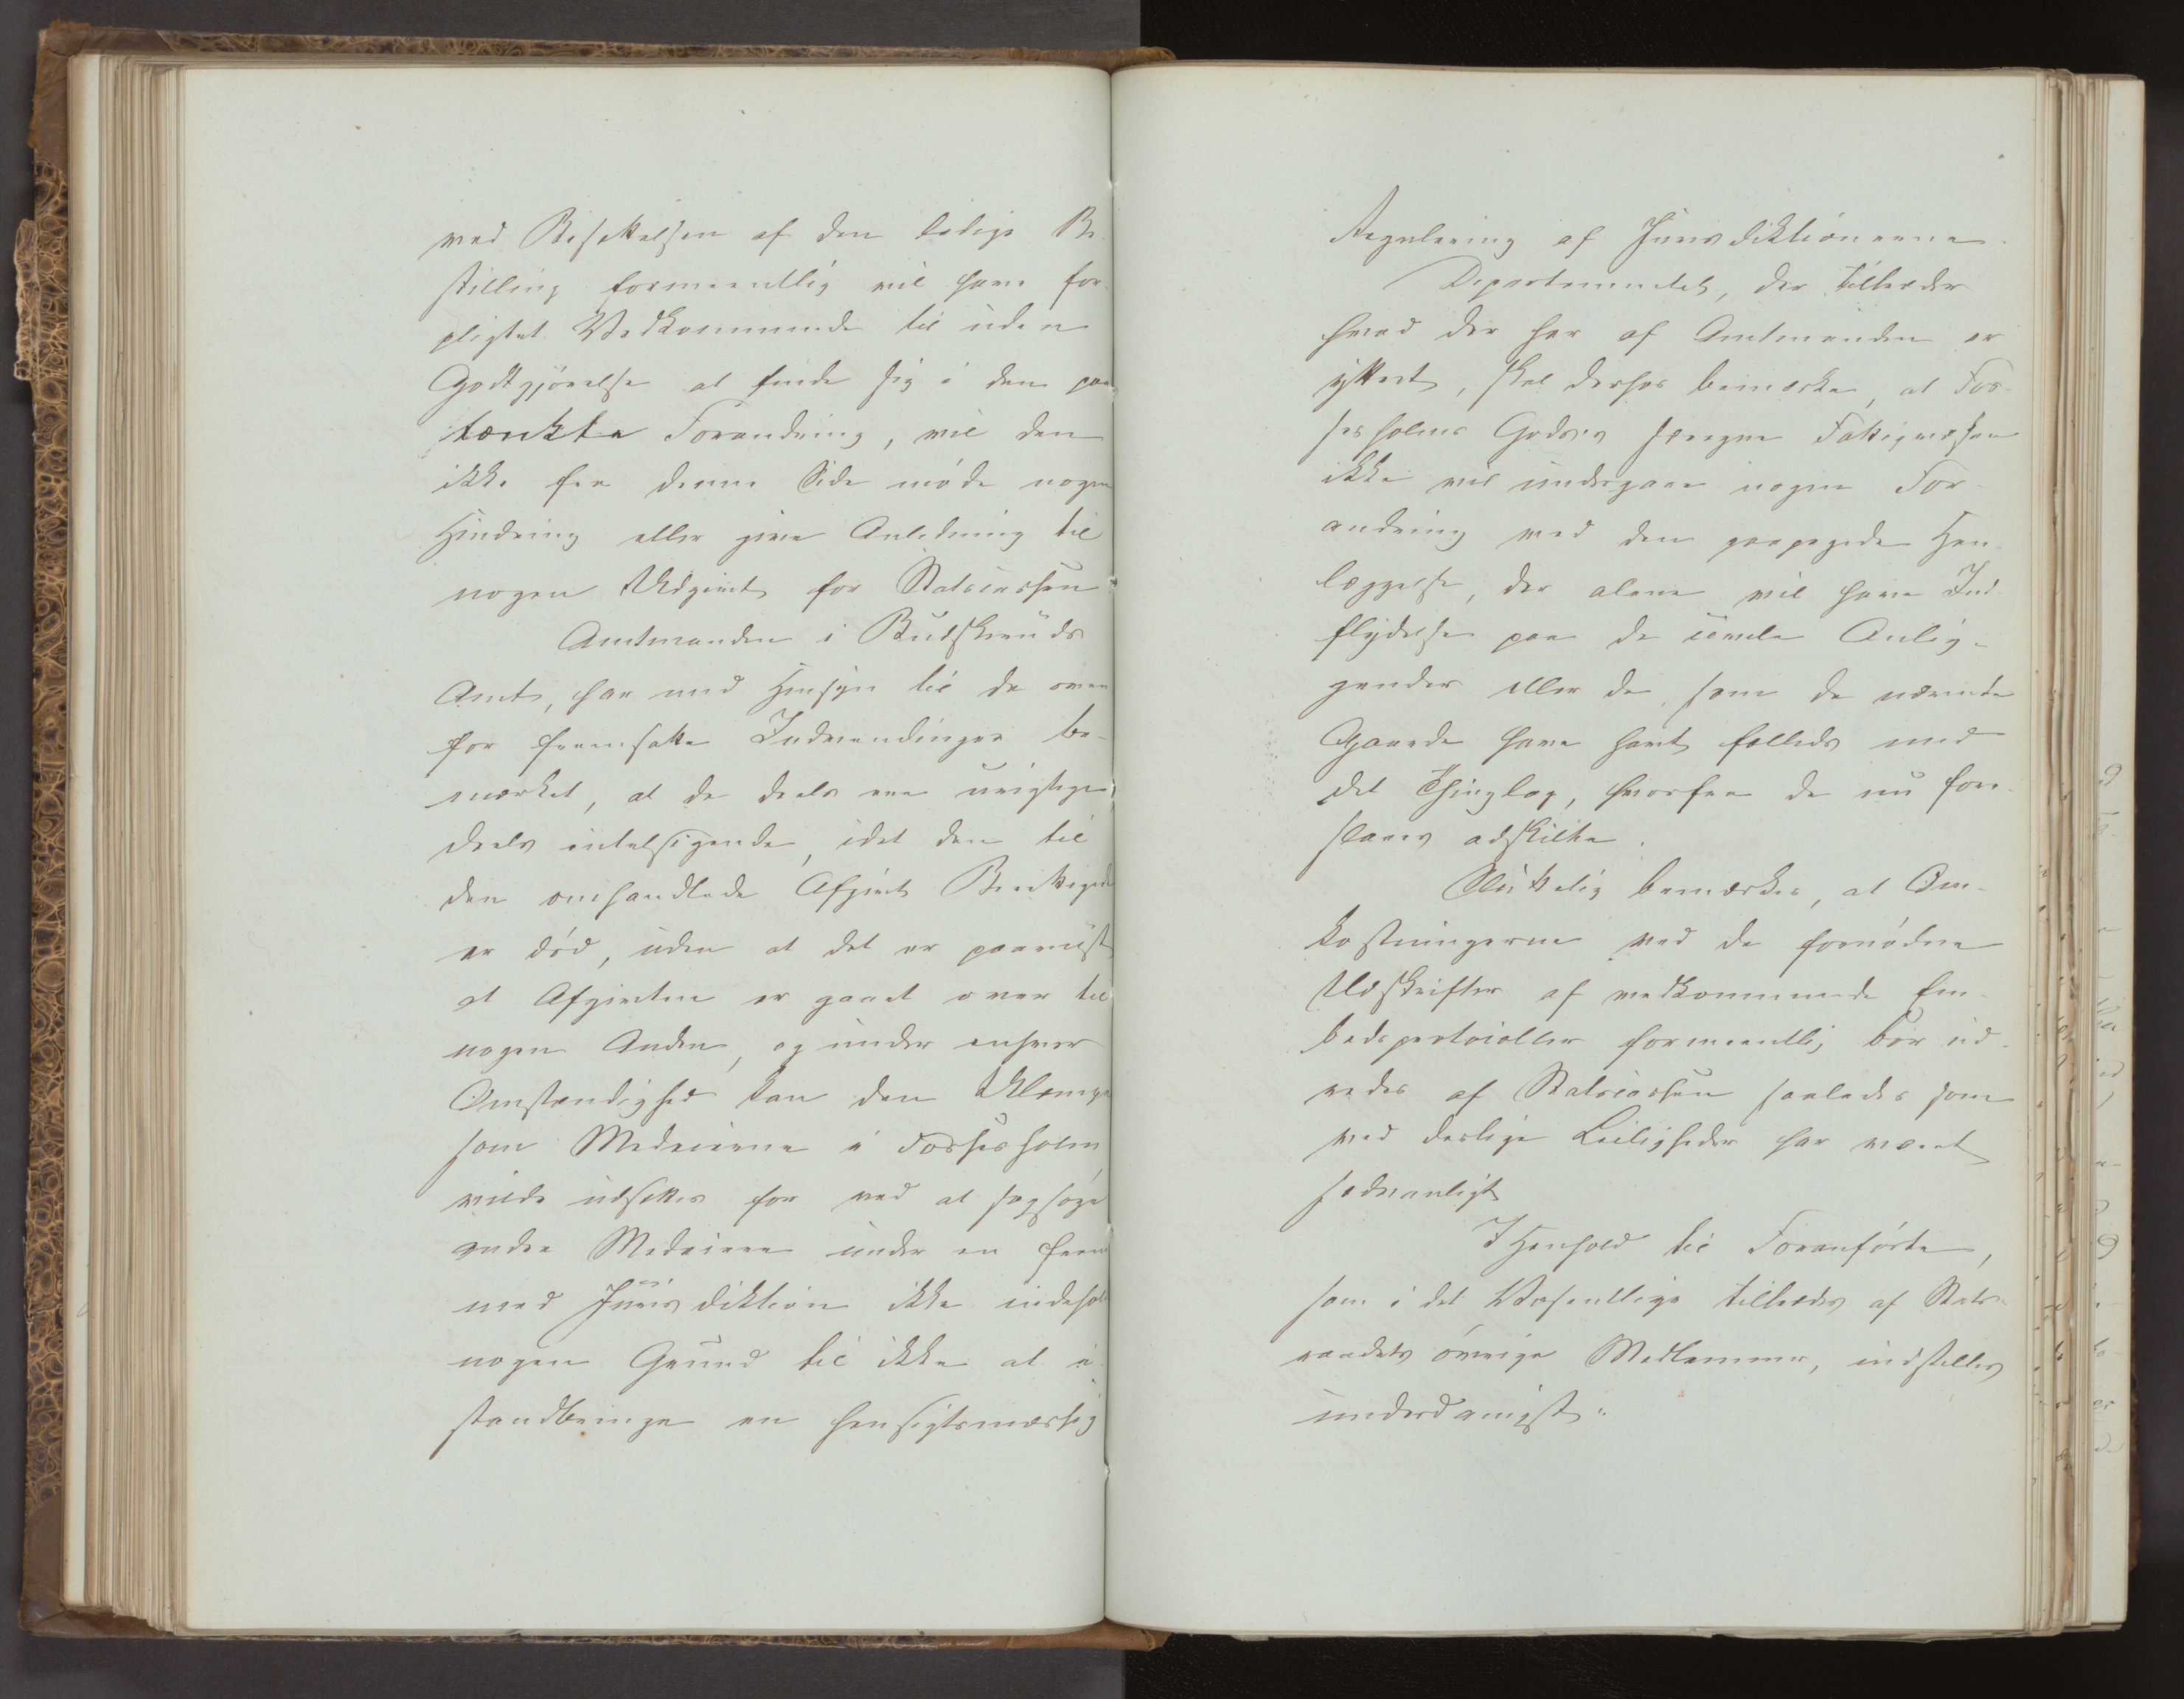 ved Besættelsen af den ledige Be-
stilling formeentlig vil have for-
pligtet Vedkommende til uden
Godtgjörelse at finde sig i den paa
tænkte Forandring, vil den
ikke fra denne Side möde nogen
Hindring eller give Anledning til
nogen Udgivt for Statscassen
Amtmanden i Budskeruds
Amt, har med Hensyn til de oven
for fremsatte Indvendinger be-
mærket, at de deels ere urigtige,
deels intetsigende, idet den til
den omhandlede Afgivt Berettigede
er död, uden at det er paaviist
at Afgivten er gaaet over til
nogen Anden, og under enhver
Omstændighed kan den Ulempe
som Medeierne i Fossesholm
vilde udsættes for ved at sagsöge
andre Medeiere under en frem
med Jurisdiktion ikke indehol
nogen Grund til ikke at i-
standbringe en hensigtsmæssig
Regulering af Jurisdiktionerne.
Departementet, der tiltræder
hvad der her af Amtmanden er
yttret, skal derhos bemærke, at Fos-
sesholms Godses særegne Fattigvæsen
ikke vil undergaae nogen For-
andring ved den paapegede Hen-
læggelse, der alene vil have Ind-
flydelse paa de Anlig-
gender eller de, som de nævnte
Gaarde have havt fælleds med
det Thinglag, hvorfra de nu fore-
slaaes adskilte.
Slutteligen bemærkes, at Om-
kostningerne ved de fornödne
Udskrifter af vedkommende Em-
bedsprotocoller formeentlig bör ud-
redes af Statscassen saaledes som
ved deslige Leiligheder har været
sædvanligt
I Henhold til Foranförte,
som i det Væsentlige tiltrædes af Stats-
raadets övrige Medlemmer, indstilles
underdanigst: